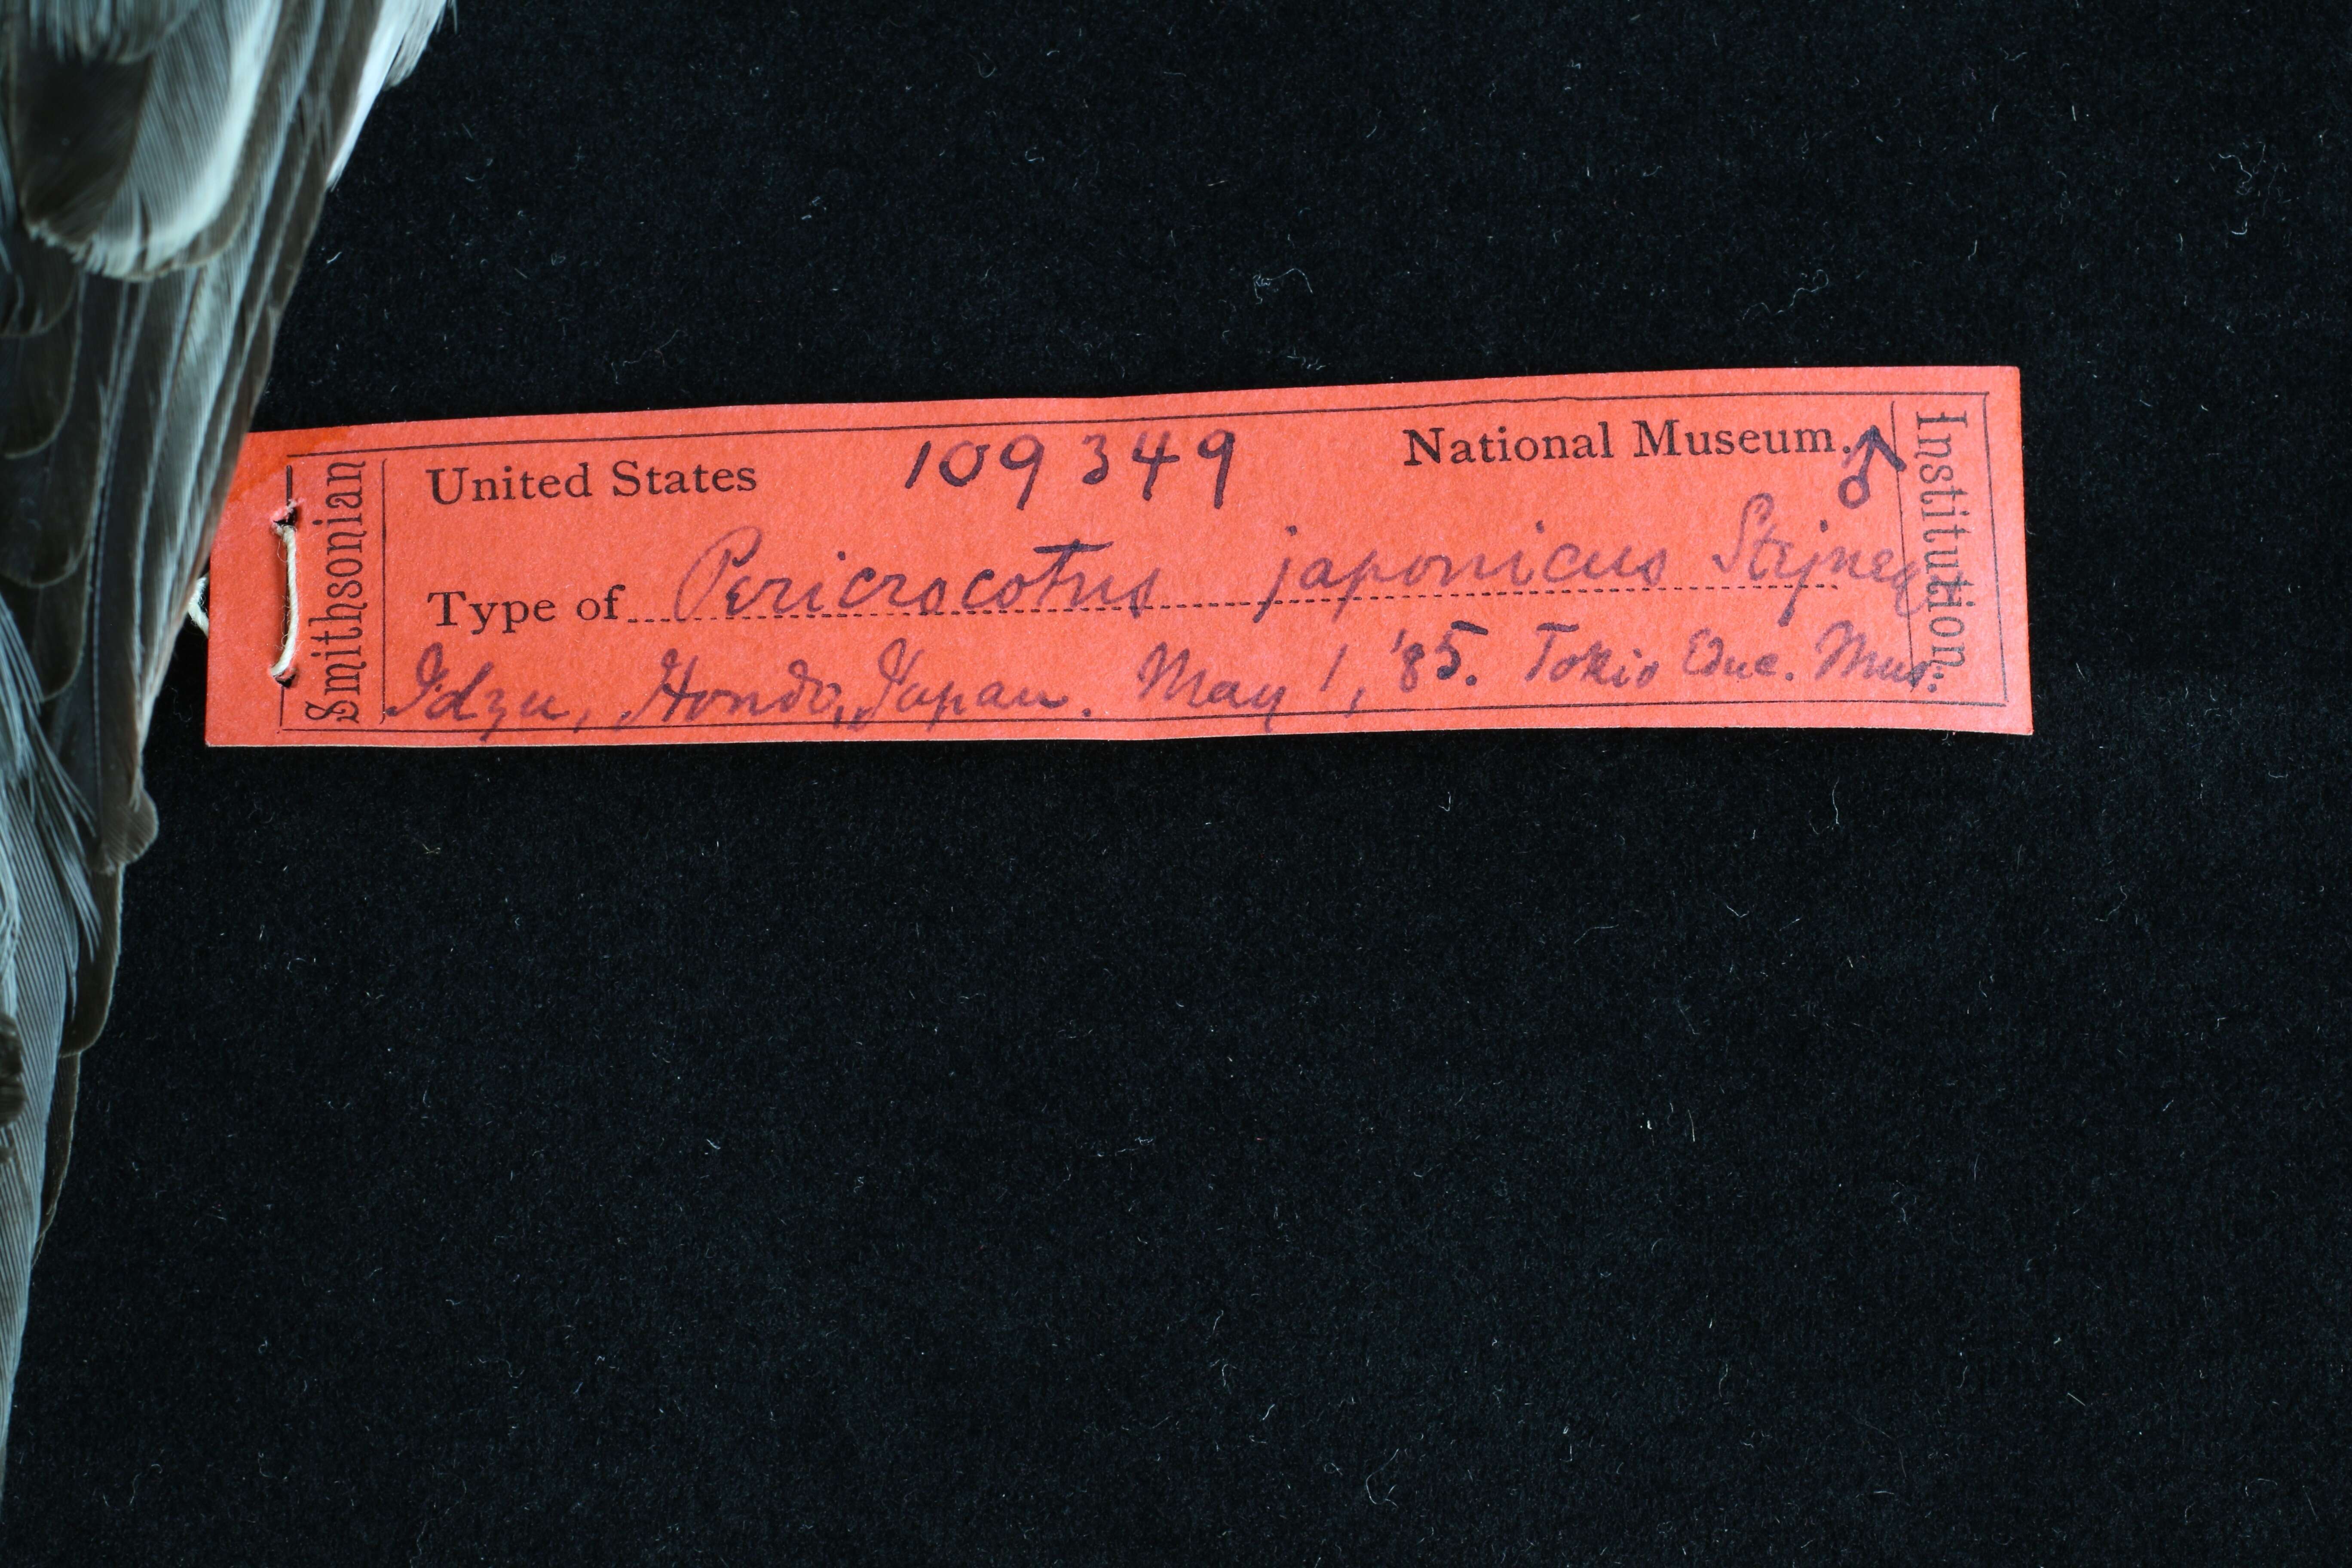 Smithsonian
United States 109349 National Museum. ♂
Type of Pericrocotus japonicus Stejneg.
Idzu, Hondo, Japan. May 1, '85. Tokio Educ. Mus.
Institution.